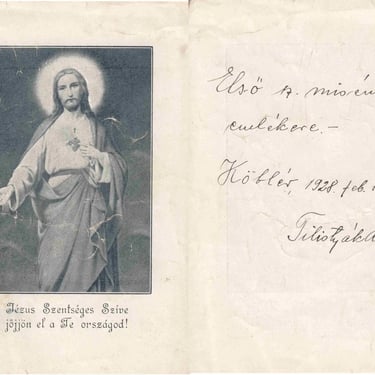 Jézus Szentséges Szive
jöjjön el a Te országod!
Első sz. misém
emlékére.-
Köblér, 1928. feb.